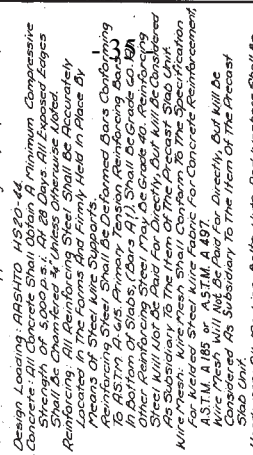 Design Loading: AASHTO HS20-44.
Concrete: All Concrete Shall Obtain A Minimum Compressive
Strength Of 5,000 p.s.i. At 28 Days. All Exposed Edges
Shall Be Chamfered ¾" Unless Otherwise Noted.
Reinforcing: All Reinforcing Steel Shall Be Accurately
Located In The Forms And Firmly Held In Place By
Means Of Steel Wire Supports.
Reinforcing Steel Shall Be Deformed Bars Conforming
To A.S.T.M. A-615. Primary Tension Reinforcing Bars
In Bottom Of Slabs, (Bars A1), Shall Be Grade 60. All
Other Reinforcing Steel May Be Grade 40. Reinforcing
Steel Will Not Be Paid For Directly, But Will Be Considered
As Subsidiary To The Item Of The Precast Slab Unit.
Wire Mesh: Wire Mesh Shall Conform To The Specification
For Welded Steel Wire Fabric For Concrete Reinforcement,
A.S.T.M. A 185 or A.S.T.M. A 497.
Wire Mesh Will Not Be Paid For Directly, But Will Be
Considered As Subsidiary To The Item Of The Precast
Slab Unit.
- 35 -